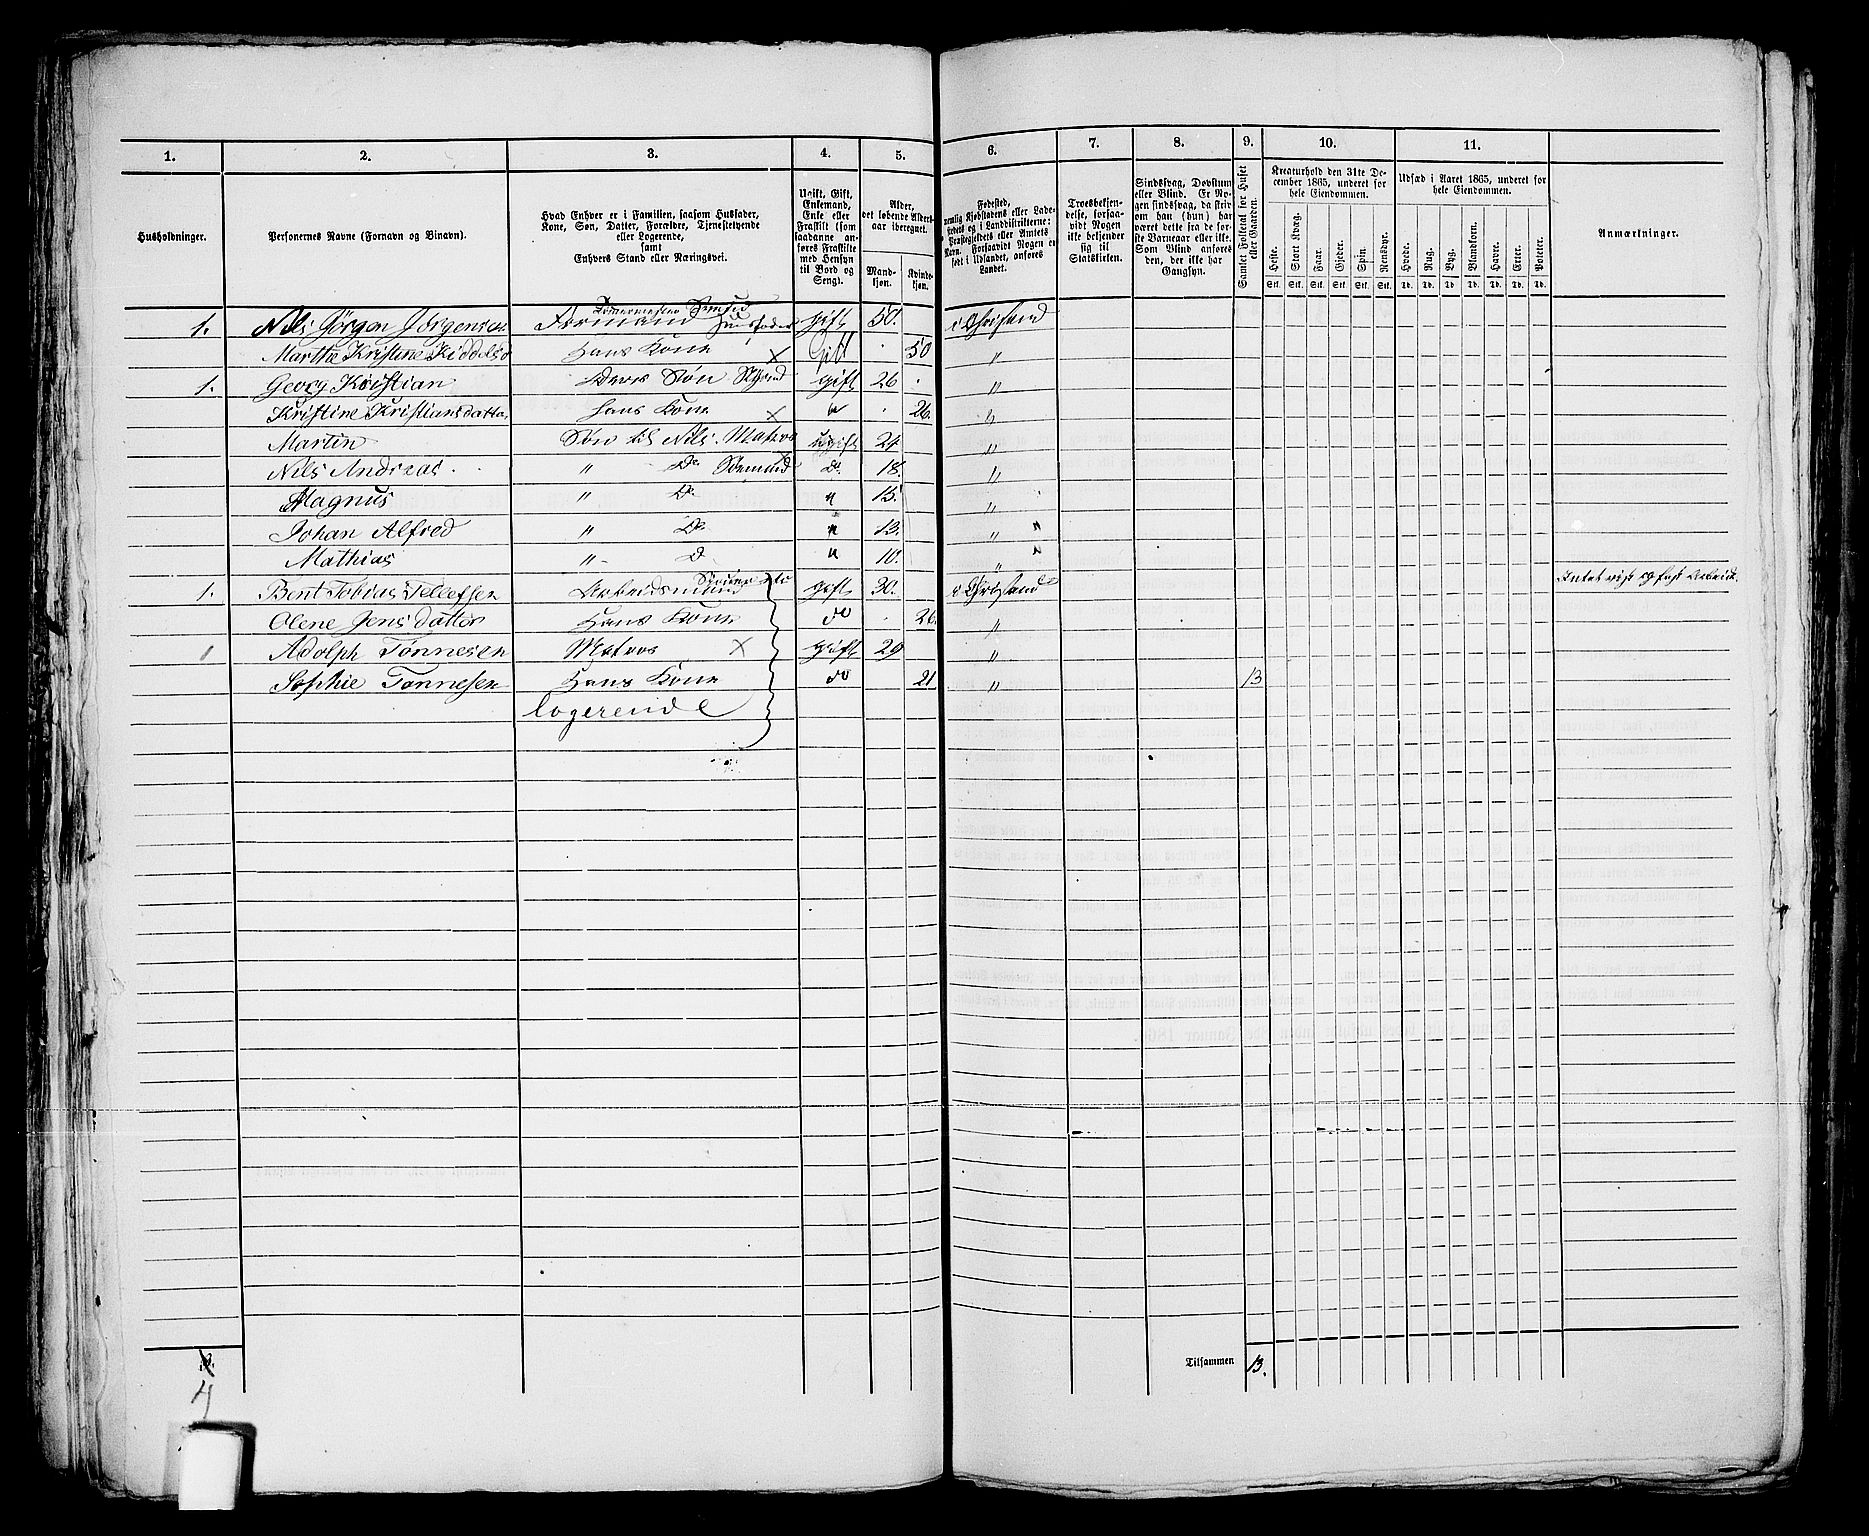 1. 2. 3. 4. 5. 6. 7. 8. 9. 10. 11.
Husholdninger.
Personernes Navne (Fornavn og Binavn).
Hvad Enhver er i Familien, saasom Husfader,
Kone, Søn, Datter, Forældre, Tjenestetyende
eller Logerende,
samt
Enhvers Stand eller Næringsvei.
Ugift, Gift,
Enkemand,
Enke eller
Fraskilt (som
saadanne an-
føres Fraskilte
med Hensyn
til Bord og
Seng).
Alder,
det løbende Alders-
aar iberegnet.
Mand-
kjøn.
Kvinde-
kjøn.
Fødested,
nemlig Kjøbstadens eller Lade-
stedets og i Landdistrikterne:
Præstegjeldets eller Amtets
Navn. Forsaavidt Nogen er
født i Udlandet, anføres
Landet.
Troesbekjen-
delse, forsaa-
vidt Nogen
ikke bekjender
sig til
Statskirken.
Sindssvag, Døvstum
eller Blind. Er No-
gen sindssvag, da skriv
om han (hun) har
været dette fra de før-
ste Barneaar eller ikke.
Som Blind anføres
den, der ikke har
Gangsyn.
Samlet Folketal for Huset
eller Gaarden.
Kreaturhold den 31te De-
cember 1865, underet for
hele Eiendommen.
Heste. Stort Kvæg. Faar. Gjeder. Svin. Rensdyr.
Stk. Stk. Stk. Stk. Stk. Stk.
Udsæd i Aaret 1865, underet for
hele Eiendommen.
Hvede. Rug. Byg. Blandkorn. Havre. Erter. Poteter.
Td. Td. Td. Td. Td. Td. Td.
Anmærkninger.
1. Nils Jörgen Jörgensen Tømmermester Smed Formand Huusfader gift 50. i Christsand
Marthe Kristine Hans Kone gift 50 "
1. Georg Kristian Deres Søn gift 26 "
Kristine Kristiansdatter Hans Kone × " 26. "
Martin Søn til Nils. Matros ugift 24 "
Nils Andreas " Do Sömand do 18. "
Magnus " Do " 15. "
Johan Alfred " Do " 13. "
Mathias " Do " 10. "
1. Bent Tobias Tellefsen Arbeidsmand gift 30. i Christsand Intet vist og fast Arbeide.
Olene Jensdatter Hans Kone do 26. "
1 Adolph Tönnesen Matros × gift 29 "
Sophie Tönnesen Hans Kone do 21 " 13
logerende
Tilsammen 13.
4